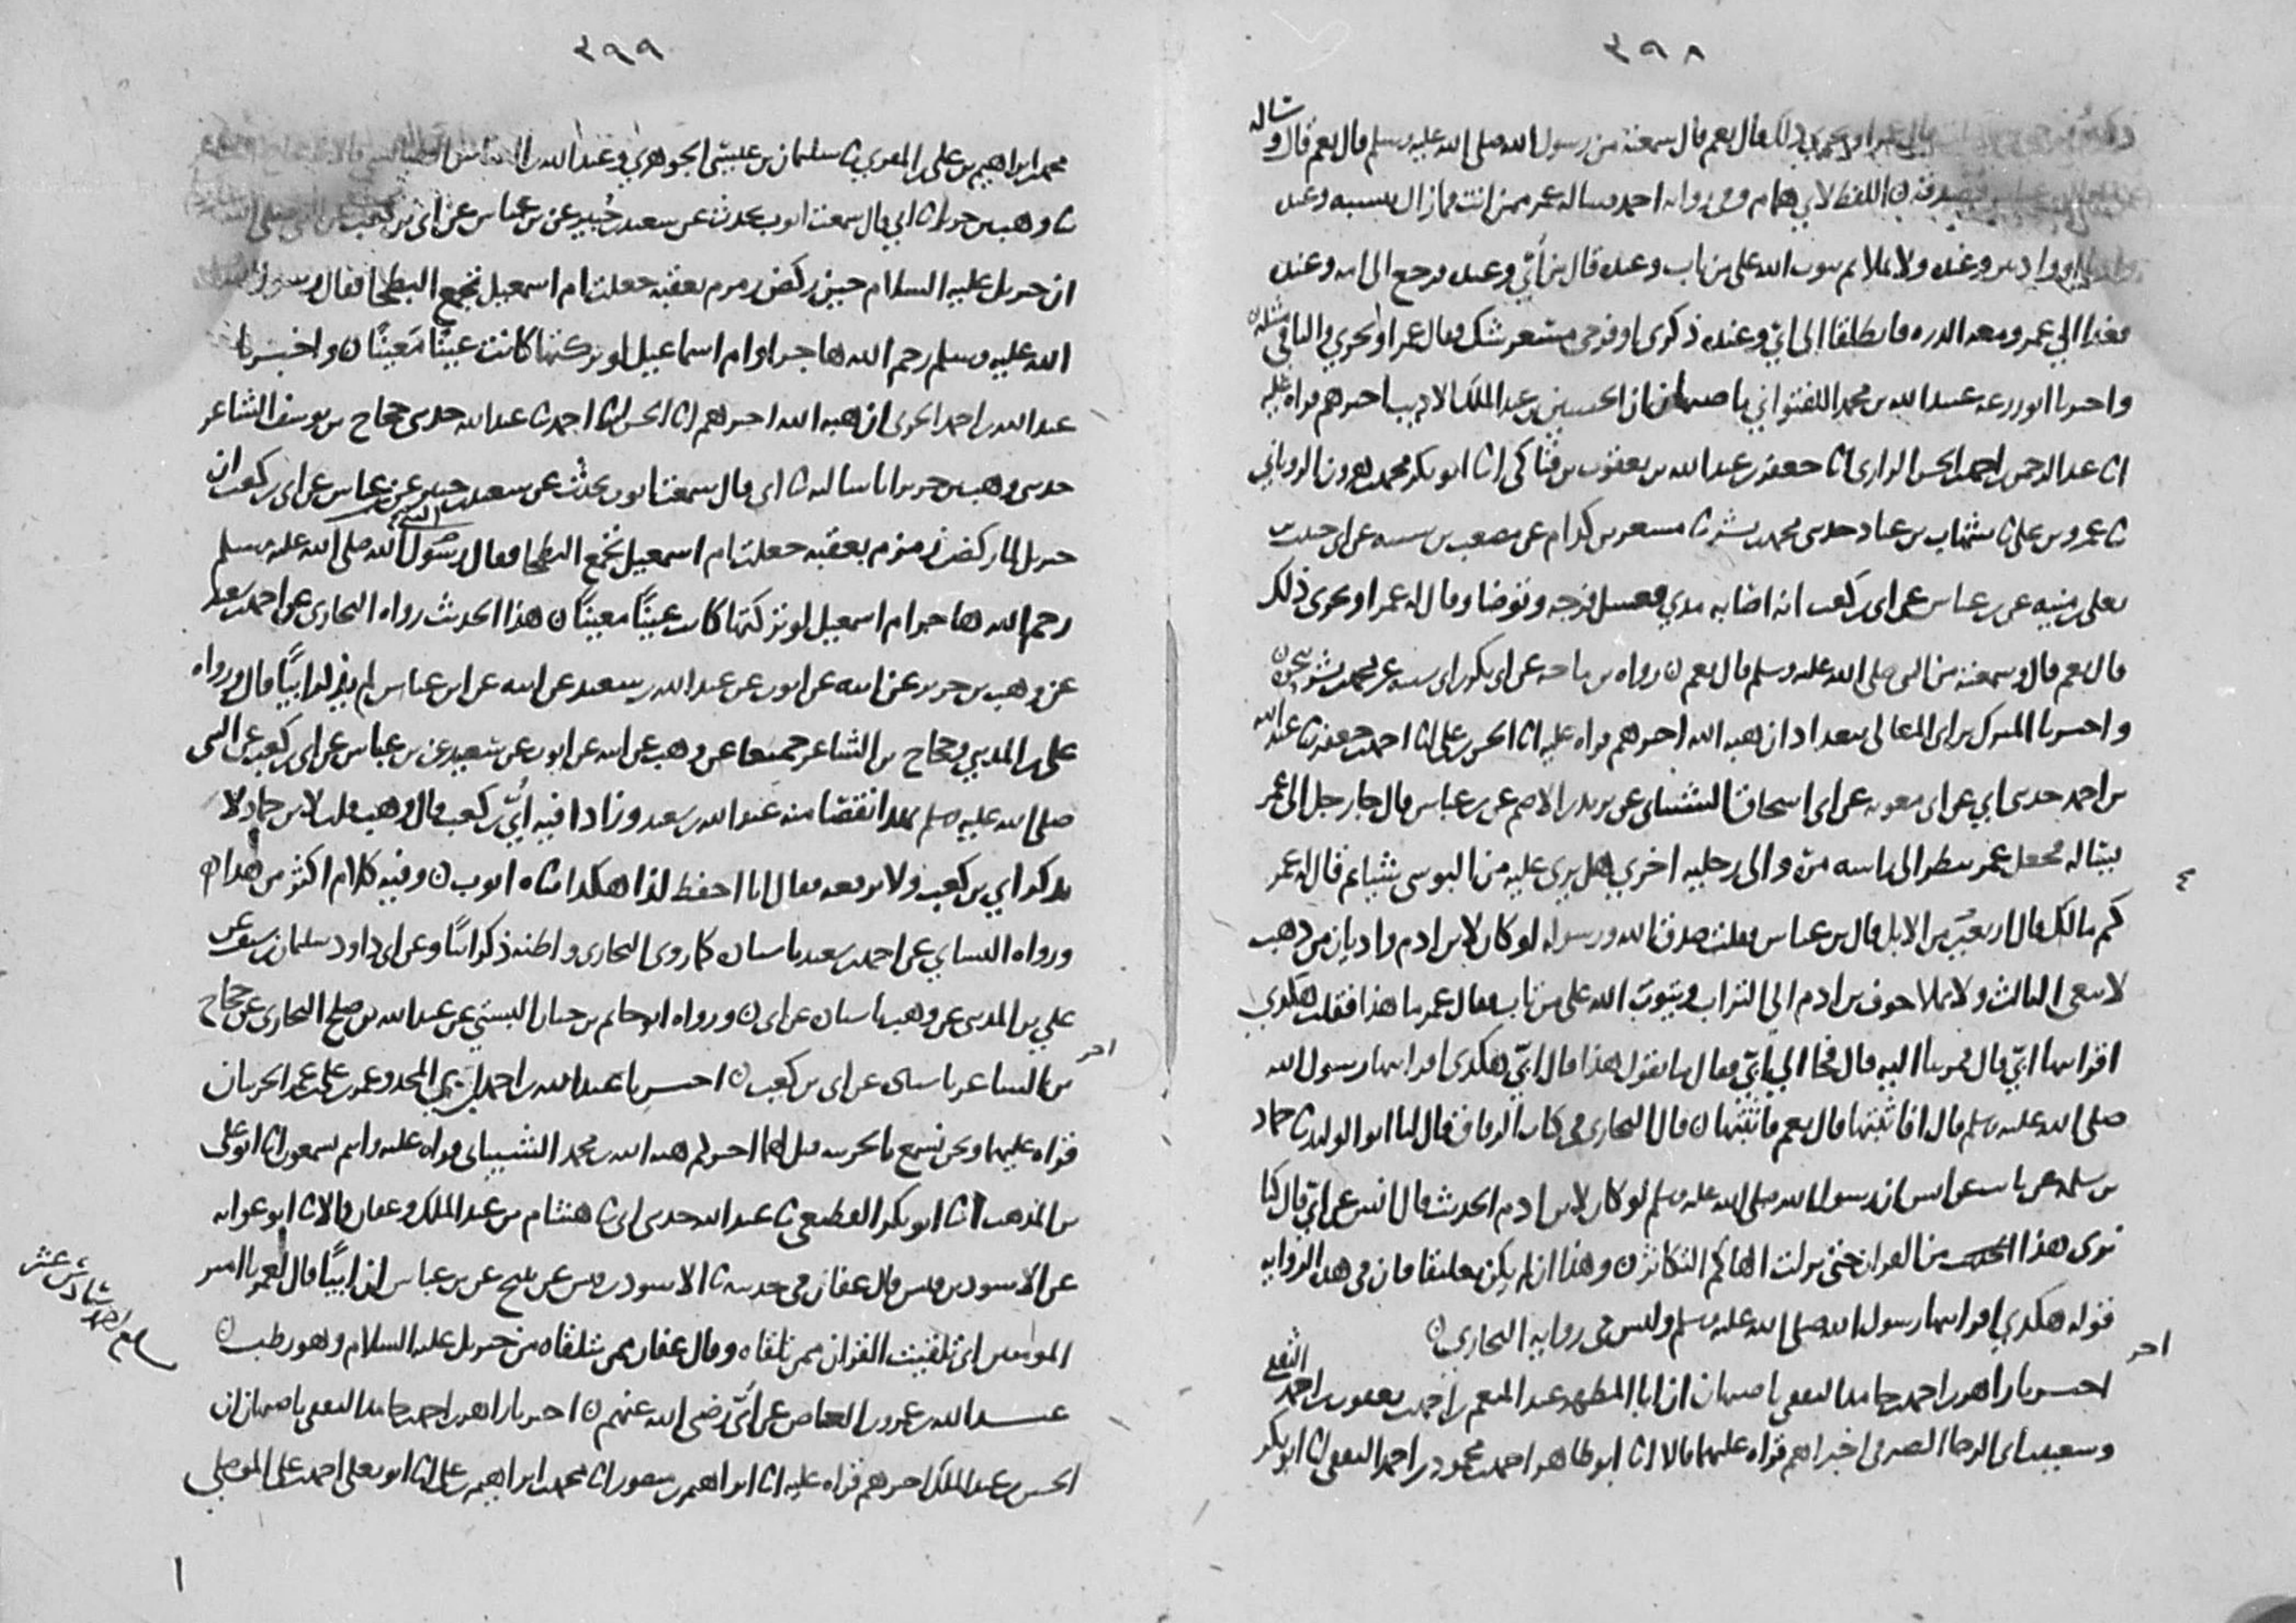 ٣٩٨
فقال عمر او يجزي ذلك قال نعم قال سمعته من رسول الله صلى الله عليه وسلم قال نعم قال و ساله
اللفظ لابي همام وفي رواية احمد فساله عمر ممن انت فما زال ينسبه وعنده
ولا يملا ثم يتوب الله على من تاب وعنده قال من أُبي وعنده فرجع الى امه وعنده
فغدا الى عمر ومعه الدره فانطلقا الى ابي وعنده ذكري او فرجي مسعر شك فقال عمر او يجزي والباقي مثله
واخبرنا ابو زرعه عبيد الله بن محمد اللفتواني باصبهان ان الحسين بن عبد الملك الاديب اخبرهم قراه عليه
انا عبد الرحمن بن احمد بن الحسن الرازي انا جعفر بن عبد الله بن يعقوب بن فناكي انا ابو بكر محمد بن هرون الروياني
نا عمرو بن علي نا شهاب بن عباد حدثني محمد بن بشر نا مسعر بن كدام عن مصعب بن شيبه عن ابي حبيب بن
يعلى بن منيه عن بن عباس عن ابي بن كعب انه اصابه مذي فغسل فرجه وتوضا وقال له عمر او يجزي ذلك
قال نعم قال وسمعته من النبي صلى الله عليه وسلم قال نعم ن رواه بن ماجه عن ابي بكر بن ابي شيبه عن محمد بن بشر بنحوه ن
واخبرنا المبرك بن ابي المعالي ببغداد ان هبه الله اخبرهم قراه عليه انا الحسن بن علي انا احمد بن جعفر نا عبد الله
بن احمد حدثني ابي عن ابي معويه عن ابي اسحاق الشيباني عن يزيد بن الاصم عن بن عباس قال جا رجل الى عمر
يساله فجعل عمر ينظر الى راسه مرة والى رجليه اخرى هل يرى عليه من البوس شيا ثم قال له عمر
كم مالك قال اربعين من الابل قال بن عباس فقلت صدق الله ورسوله لو كان لابن ادم واديان من ذهب
لابتغى الثالث ولا يملا جوف بن ادم الى التراب ويتوب الله على من تاب فقال عمر ما هذا فقلت هكذي
اقرانيها ابي قال فمر بنا اليه قال فجا الى ابي فقال ما يقول هذا قال ابي هكذى اقرانيها رسول الله
صلى الله عليه وسلم قال افاثبتها قال نعم فاثبتها ن قال البخاري في كتاب الرقاق فقال لنا ابو الوليد نا حماد
بن سلمه عن ثابت عن انس ان رسول الله صلى الله عليه وسلم لو كان لابن ادم الحديث قال انس عن ابي قال كنا
نرى هذا من القران حتى نزلت الهاكم التكاثر ن وهذا ان لم يكن معلقا فان في هذه الروايه
قوله هكذي اقرانيها رسول الله صلى الله عليه وسلم وليس في رواية البخاري ن
اخر
اخبرنا زاهر بن احمد بن حامد الثقفي باصبهان ان ابا المطهر عبد المنعم بن احمد بن يعقوب بن احمد الثقفي
وسعيد بن ابي الرجا الصيرفي اخبراهم قراه عليهما قالا انا ابو طاهر احمد بن محمود بن احمد الثقفي انا ابو بكر
٣٩٩
محمد بن ابراهيم بن علي بن المقري نا سلمان بن عيسى الجوهري وعبد الله بن العباس
نا وهب بن جرير نا ابي قال سمعت ايوب يحدث عن سعيد بن جبير عن بن عباس عن ابي بن كعب عن النبي صلى الله
ان جبريل عليه السلام حين ركض زمزم بعقبه جعلت ام اسمعيل تجمع البطحا فقال رسول الله
الله عليه وسلم رحم الله هاجر او ام اسماعيل لو تركتها كانت عينًا مَعينًا ن واخبرنا
عبد الله بن احمد الحربي ان هبه الله اخبرهم انا الحسن انا احمد نا عبد الله حدثني حجاج بن يوسف الشاعر
حدثني وهب بن جرير نا ابي قال سمعت ايوب يحدث عن سعيد بن جبير عن بن عباس عن ابي بن كعب ان
جبريل لما ركض زمزم بعقبه جعلت ام اسمعيل تجمع البطحا فقال رسول الله صلى الله عليه وسلم
النبي
رحم الله هاجر ام اسمعيل لو تركتها كانت عينًا معينًا ن هذا الحديث رواه البخاري عن احمد بن سعيد
عن وهب بن جرير عن ابيه عن ايوب عن عبد الله بن سعيد عن ابيه عن ابن عباس لم يذكر ابيًّا قال ورواه
علي بن المديني وحجاج بن الشاعر جميعا عن وهب عن ابيه عن ايوب عن سعيد عن بن عباس عن ابي بن كعب عن النبي
صلى الله عليه وسلم فقد انتقصا منه عبد الله بن سعيد وزادا فيه أُبي بن كعب قال وهب قلت لابن حماد لا
يذكر ابي بن كعب ولا يرفعه فقال انا احفظ لذا هكذا حدثناه ايوب ن وفيه كلام اكثر من هذا ن
ورواه النساي عن احمد بن سعيد باسناده كما روى البخاري واظنه ذكر ابيًا وعن ابي داود سلمان بن سيف عن
علي بن المديني عن وهب باسناده عن ابي ن ورواه ابو حاتم بن حبان البستي عن عبد الله بن صلح البخاري عن حجاج
بن الشاعر باسناده عن ابي بن كعب ن اخبرنا عبد الله بن احمد بن ابي المجد وعمر بن علي بن عمر الحربيان
اخر
قراه عليهما ونحن نسمع بالحربيه قيل لهما اخبركم هبه الله بن محمد الشيباني قراه عليه وانتم تسمعون انا ابو علي
بن المذهب انا ابو بكر القطيعي نا عبد الله حدثني ابي نا هشام بن عبد الملك وعفان قالا نا ابو عوانه
عن الاسود بن قيس قال عفان في حديثه نا الاسود بن قيس عن نبيح عن بن عباس ان ابيًّا قال لعمر يا امير
المومنين اني تلقيت القران ممن تلقاه وقال عفان ممن يتلقاه من جبريل عليه السلام وهو رطب ن
عبد الله بن عمرو بن العاص عن أُبي رضي الله عنهم ن اخبرنا زاهر بن احمد بن حامد الثقفي باصبهان ان
الحسين بن عبد الملك اخبرهم قراه عليه انا ابراهيم بن منصور انا محمد بن ابراهيم بن علي انا ابو يعلى احمد بن علي الموصلي
سادس عشر